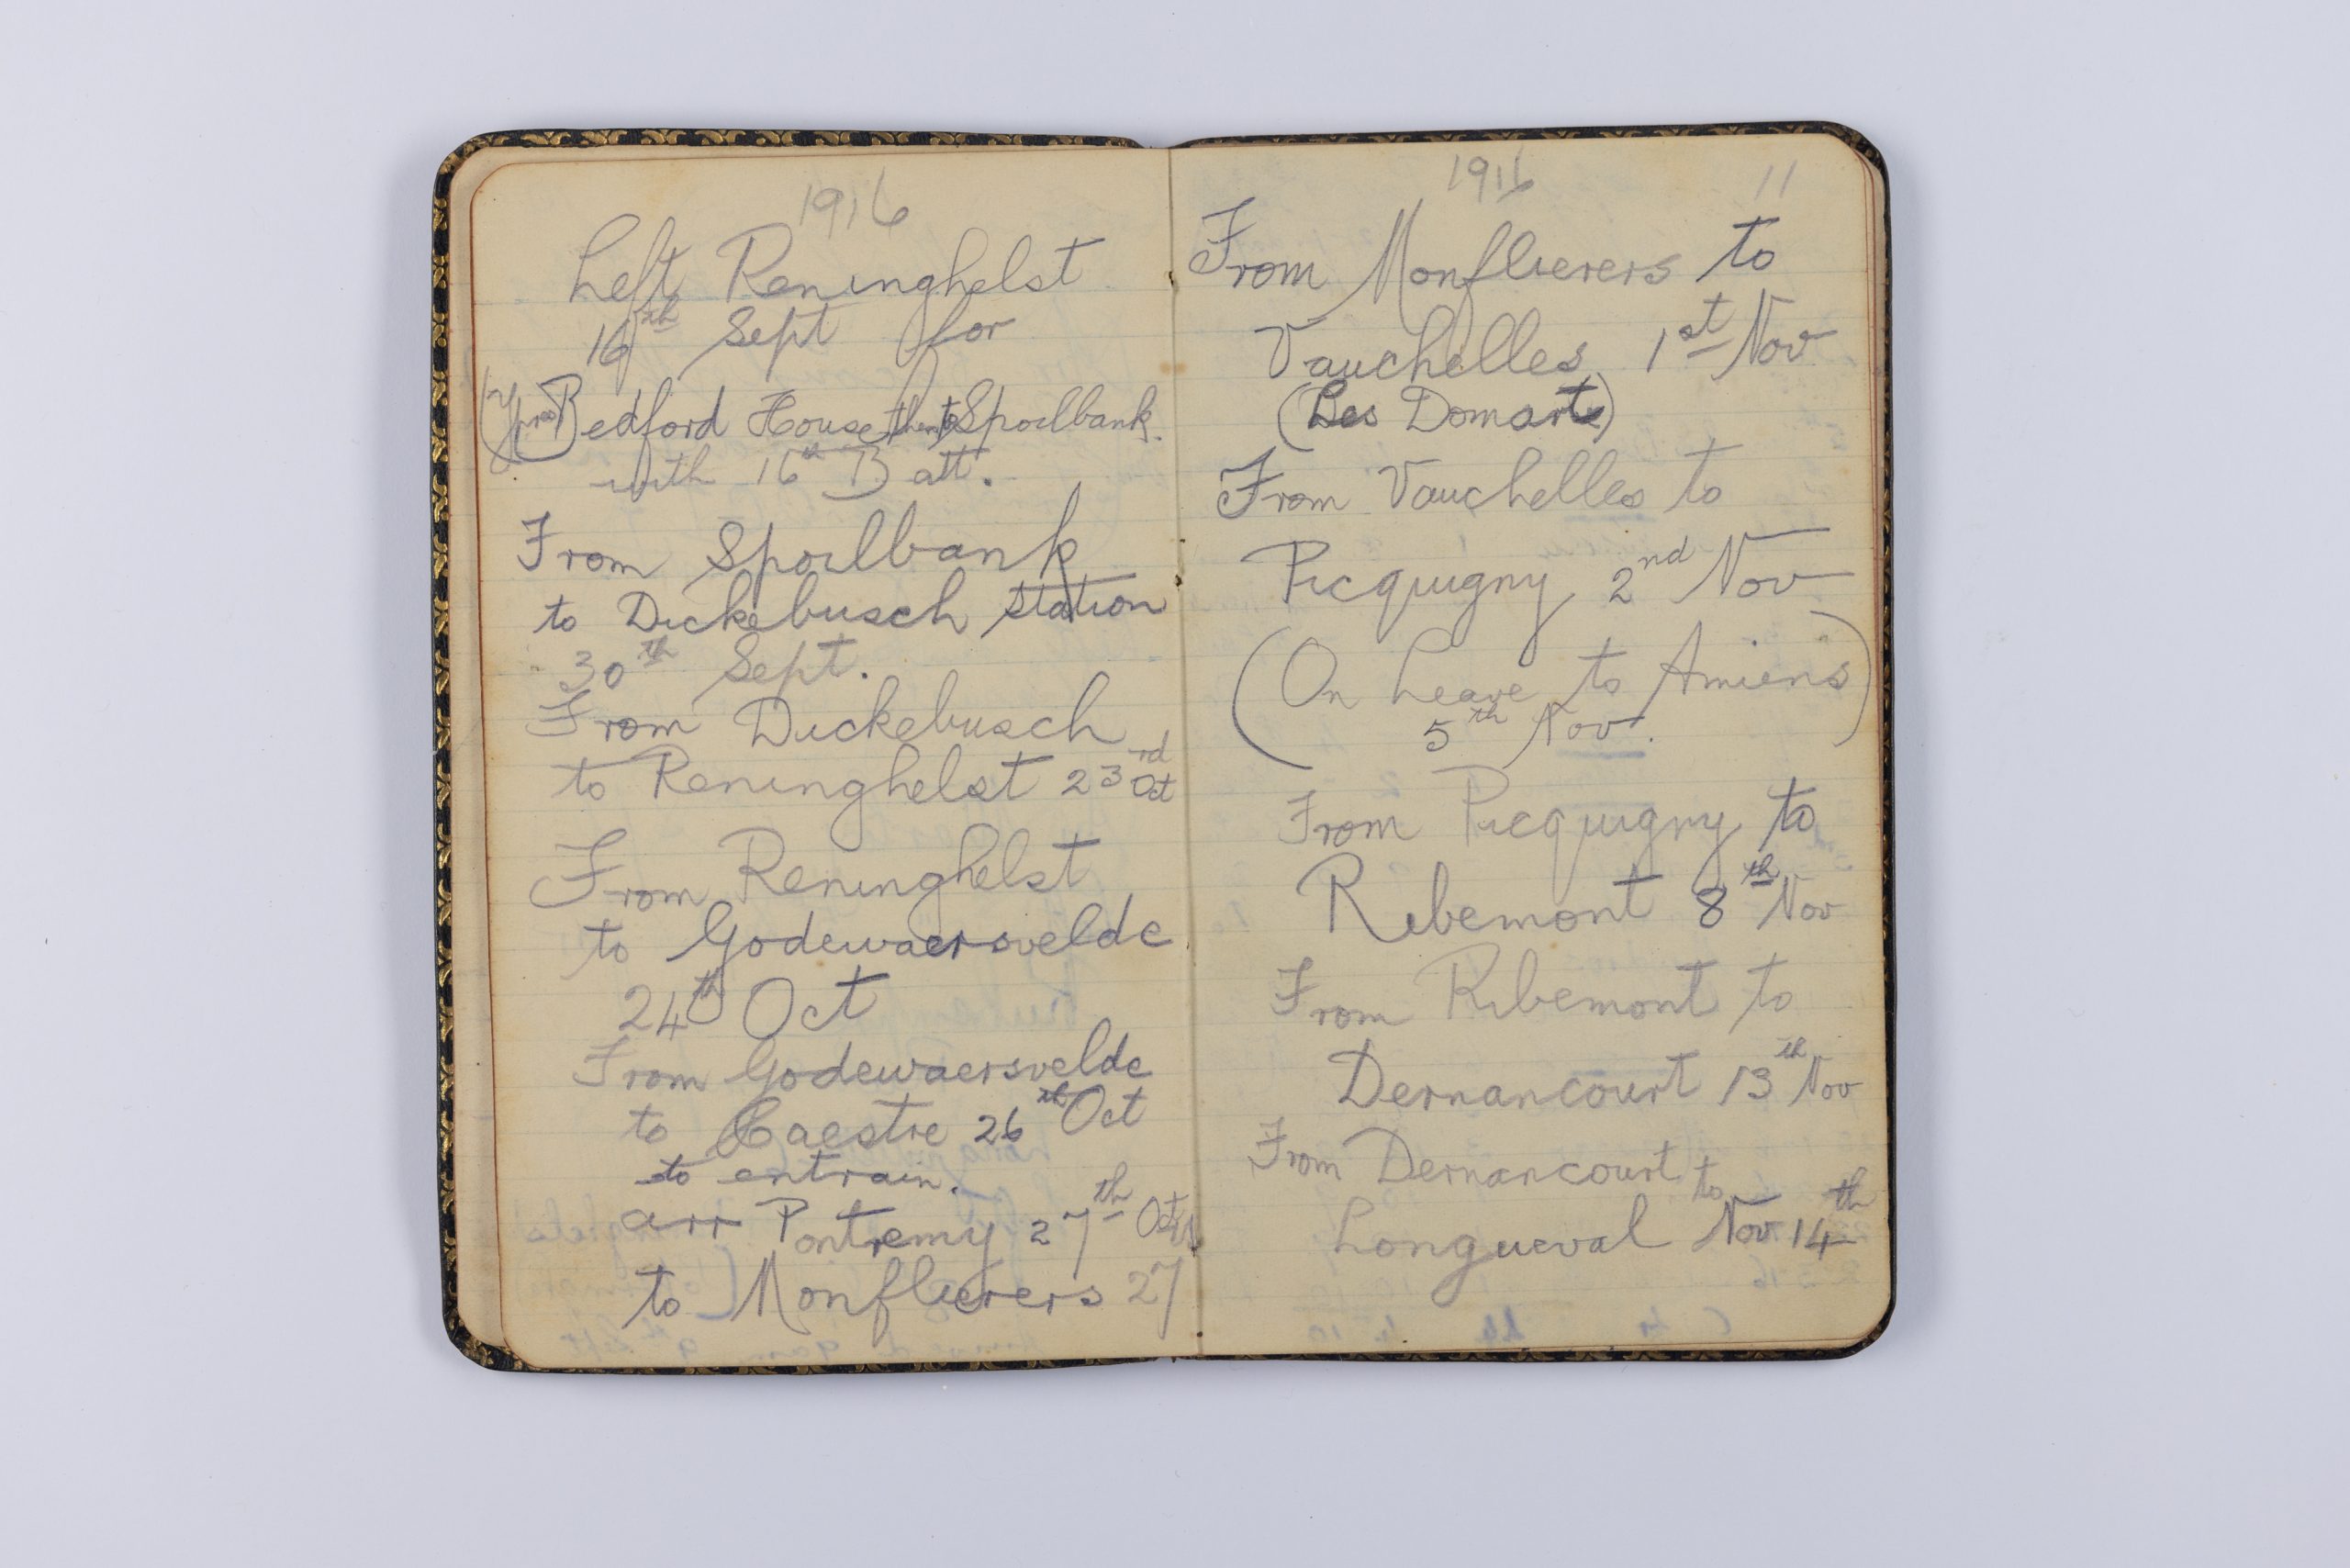 1916
Left Reninghelst
16th Sept for
(Ypres) Bedford House then to Spoilbank.
with 16th Batt.
From Spoilbank
to Dickebusch station
30th Sept.
From Dickebusch
to Reninghelst 23rd Oct
From Reninghelst
to Godewaersvelde
24th Oct
From Godewaersvelde
to Caestre 26th Oct
to entrain.
arr Pontremy 27th Oct
to Monflierers 27
1916 11
From Monflierers to
Vauchelles 1st Nov
(Les Domarts)
From Vauchelles to
Picquigny 2nd Nov
(On Leave to Amiens)
5th Nov.
From Picquigny to
Ribemont 8th Nov
From Ribemont to
Dernancourt 13th Nov
From Dernancourt to
Longueval Nov 14th